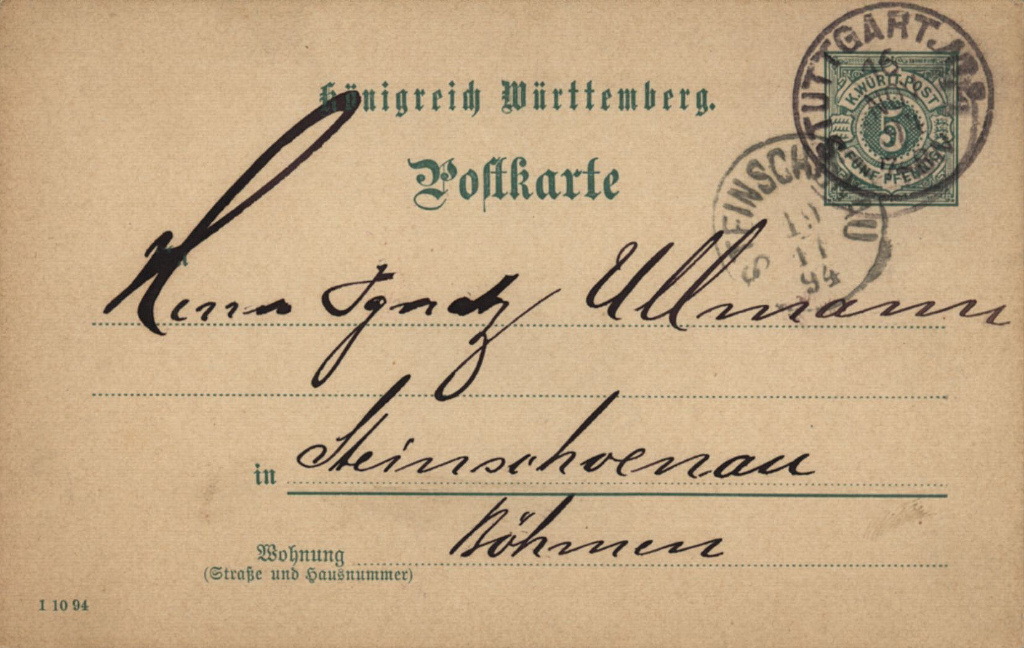 Königreich Württemberg.
Postkarte
STUTTGART. No 9
16
NOV
K. WÜRTT. POST
5
FÜNF PFENNIG
STEINSCHÖNAU
19
11
94
An
Herrn Ignatz Ullmann
in Steinschoenau
Böhmen
Wohnung
(Straße und Hausnummer)
I 10 94